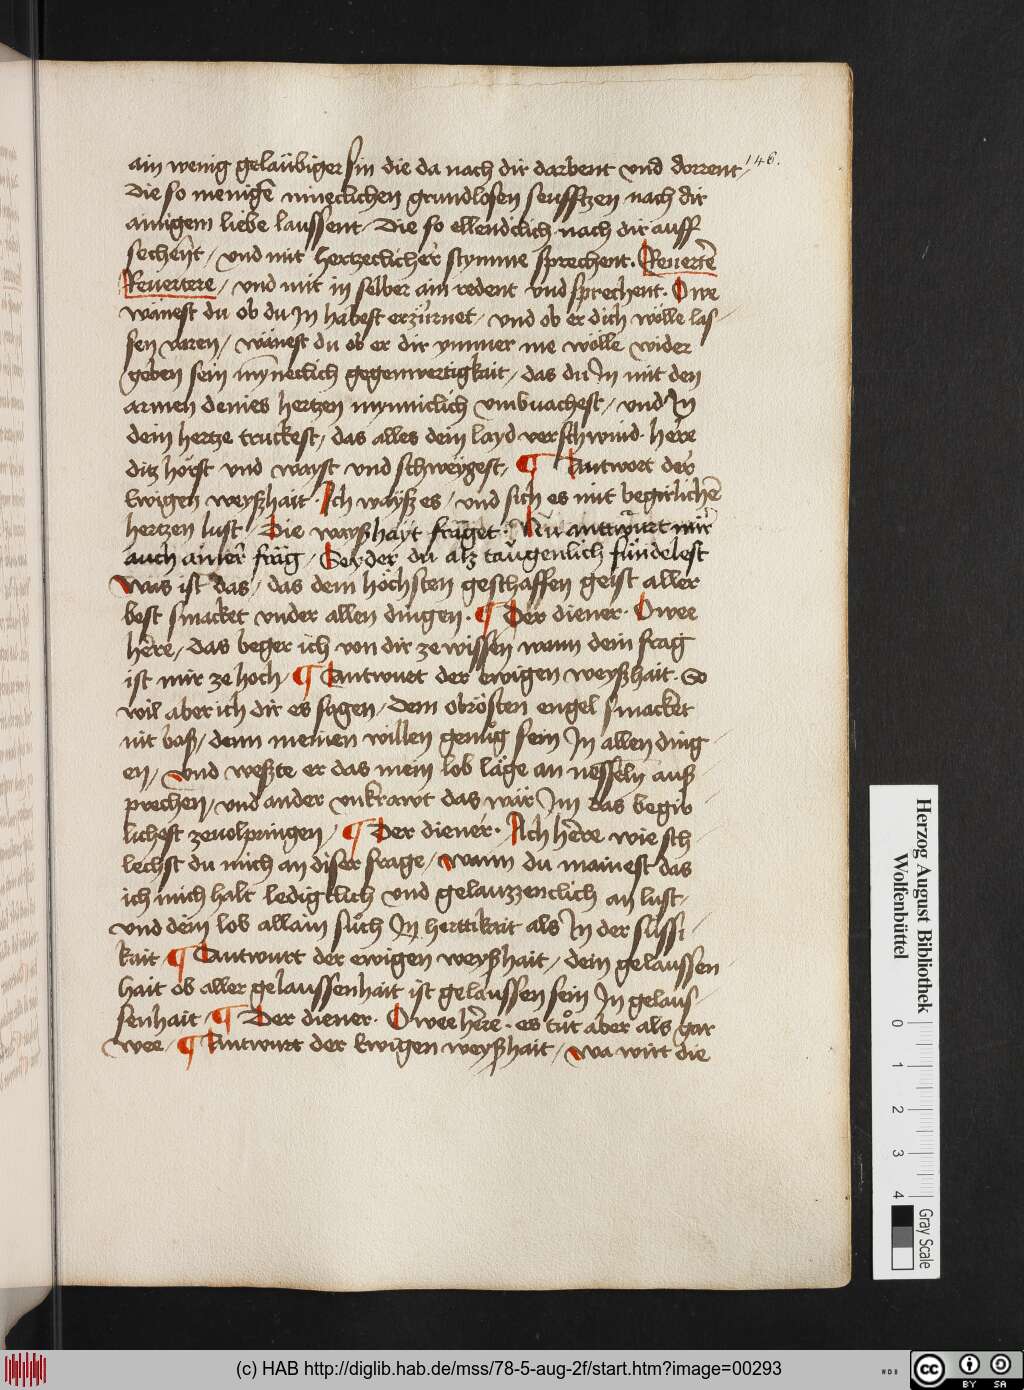 146.
ain wenig gelaübiger sin die da nach dir darbent vnd dorrent /
Die so menigē mineclichen grundlosen seufftzen nach dir
ainigem liebe laussent / Die so ellendclich nach dir auff
sechent / vnd mit hertzeclicher stymme sprechent. Reuertē
Reuertere / vnd mit in selber ain redent vnd sprechent. Owe
wänest du ob du In habest erzürnet / vnd ob er dich wölle las /
sen varen / wänest du ob er dir ymmer me wölle wider
geben sein mȳneclich gegenwertigkait / das du In mit den
armen deines hertzen mynniclich vmbuachest / vnd In
dein hertze truckest / das alles dein layd verschwind. here
ditz hörst vnd wayst vnd schweygest / ¶ Antwort der
Ewigen weyßhait. Ich wayß es / vnd sich es mit begirlichē
hertzen lust / Die wayßhayt fräget: Nu anttwurt mir
auch ainer fräg / Seyder du alz taugenlich fündelest
was ist das / das dem höchsten geschaffen geist aller
best smacket vnder allen dingen. ¶ Der diener. Owee
here / das beger ich von dir ze wissen wann dein frag
ist mir ze hoch / ¶ Antwuet der ewigen weyßhait. So
wil aber ich dir es sagen / Dem obrösten engel smacket
nit baß / denn meinen willen genug sein In allen ding /
en / vnd weßte er das mein lob läge an nesseln auß
prechen / vnd ander vnkrawt das wär Im das begir
lichest zeuolpringen / ¶ Der diener. Ach here wie sch /
lechst du mich an diser frage / wann du mainest das
ich mich halt ledigclich vnd gelauzzenclich an lust /
vnd dein lob allain such In herttikait als In der sussi /
kait ¶ Antwurt der ewigen weyßhait / dein gelaussen
hait ob aller gelaussenhait ist gelaussen sein In gelaus /
senhait / ¶ Der diener. Owee here. es tut aber als gar
wee / ¶ Antwurt der Ewigen weyßhait / wa wirt die
Herzog August Bibliothek
Wolfenbüttel
0 1 2 3 4
Gray Scale
(c) HAB http://diglib.hab.de/mss/78-5-aug-2f/start.htm?image=00293
WDB
cc BY SA